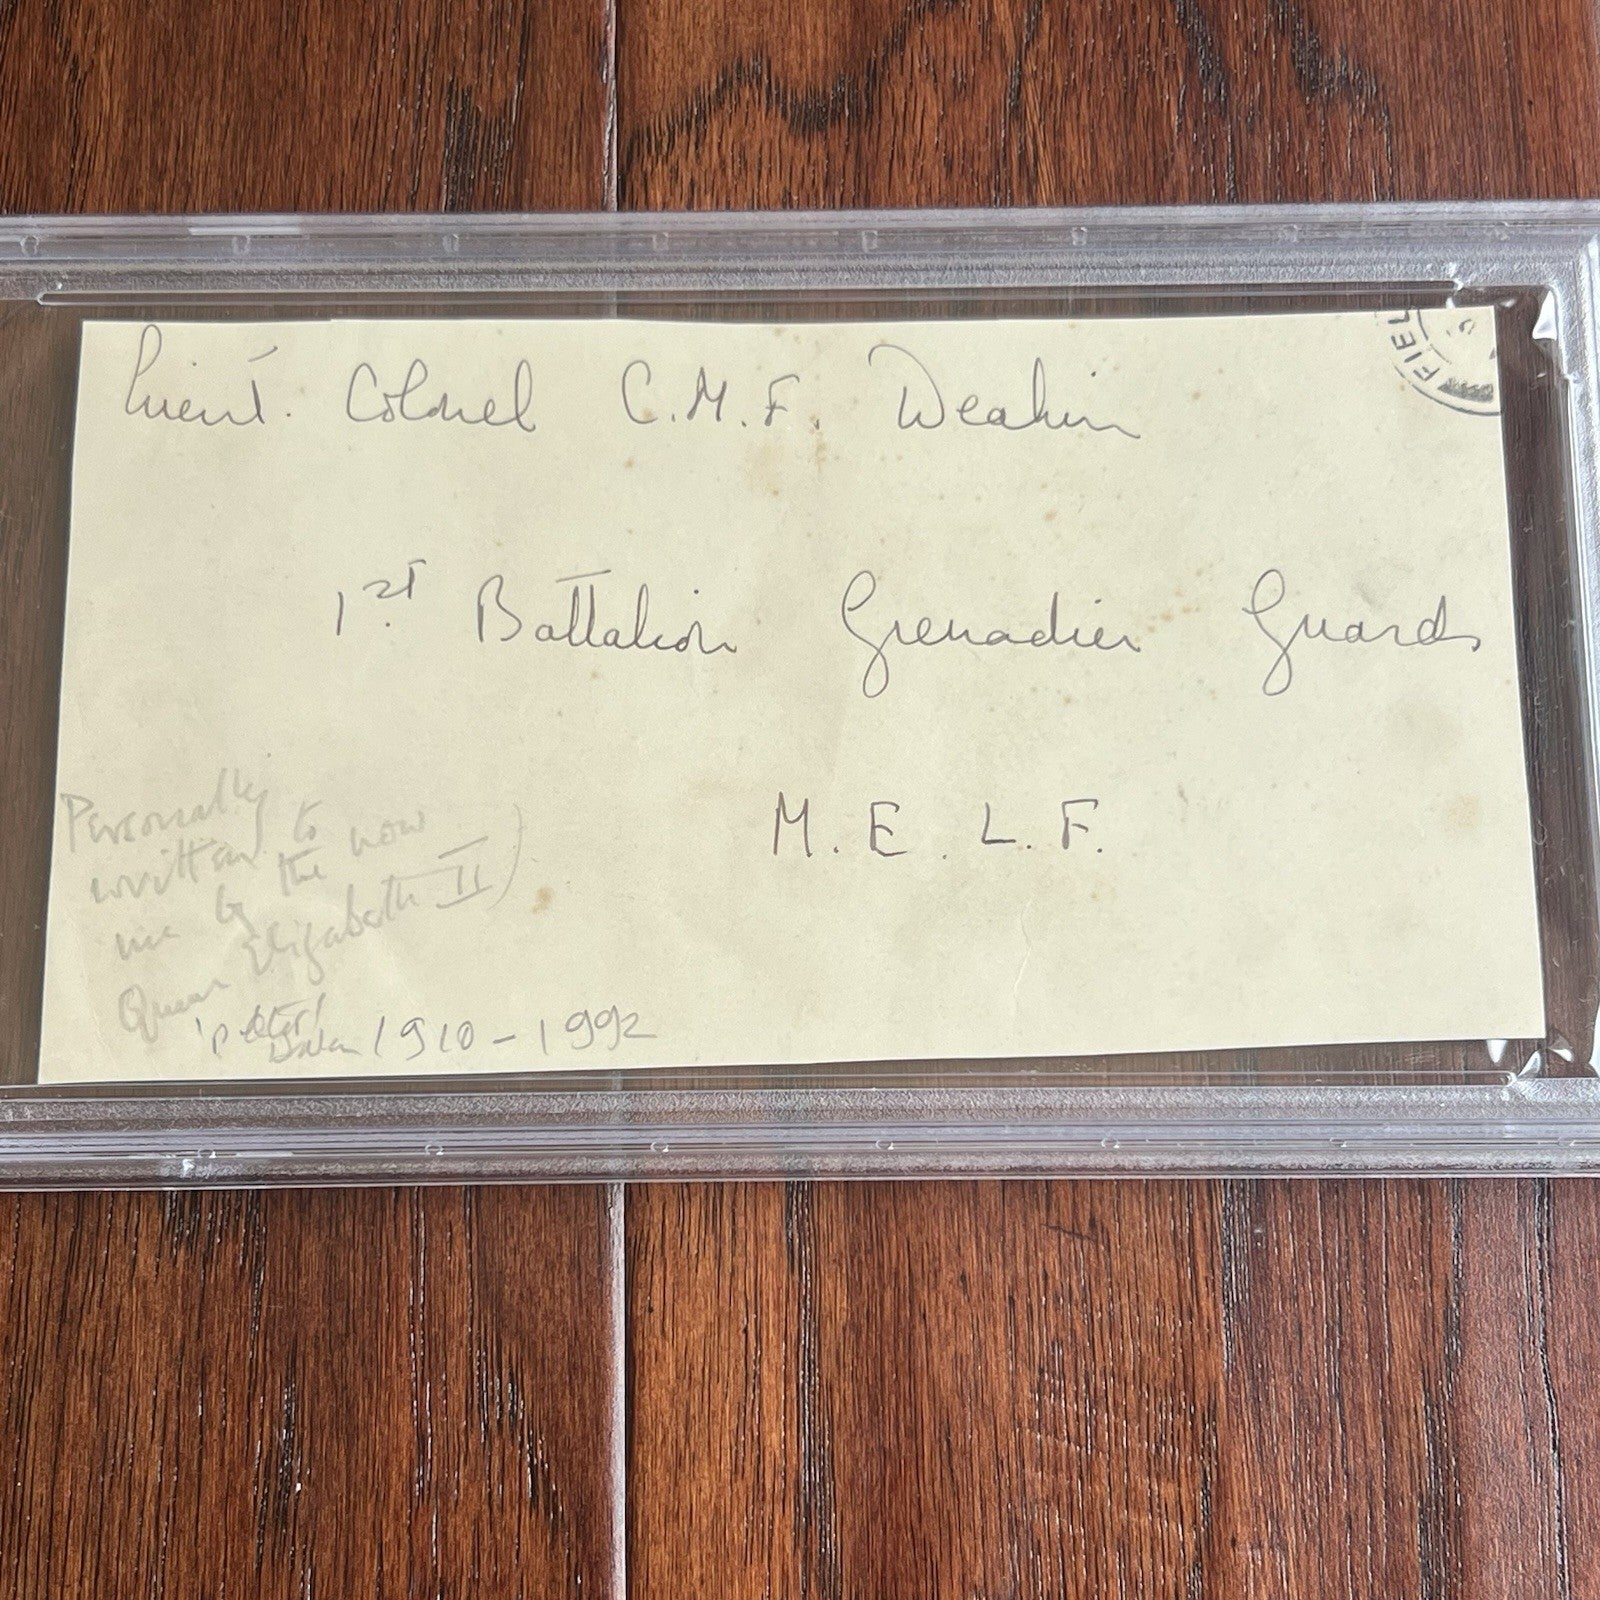 FIEL
Lieut. Colonel C.M.F. Deakin
1st. Battalion Grenadier Guards
M. E. L. F.
Personally
written to
me by the now
Queen Elizabeth II)
1910 - 1992